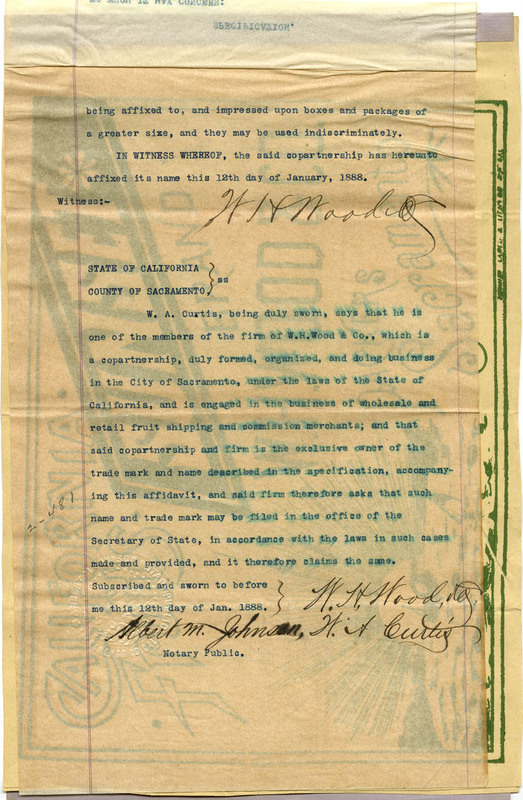 being affixed to, and impressed upon boxes and packages of
a greater size, and they may be used indiscriminately.
IN WITNESS WHEREOF, the said copartnership has hereunto
affixed its name this 12th day of January, 1888.
Witness:-
W H Wood & Co
STATE OF CALIFORNIA
COUNTY OF SACRAMENTO, } ss
W. A. Curtis, being duly sworn, says that he is
one of the members of the firm of W.H.Wood & Co., which is
a copartnership, duly formed, organized, and doing business
in the City of Sacramento, under the laws of the State of
California, and is engaged in the business of wholesale and
retail fruit shipping and commission merchants; and that
said copartnership and firm is the exclusive owner of the
trade mark and name described in the specification, accompany-
ing this affidavit, and said firm therefore asks that such
name and trade mark may be filed in the office of the
Secretary of State, in accordance with the laws in such cases
made and provided, and it therefore claims the same.
2-481
Subscribed and sworn to before
me this 12th day of Jan. 1888. }
W. H. Wood, & Co.
Albert M. Johnson, W. A Curtis
Notary Public.